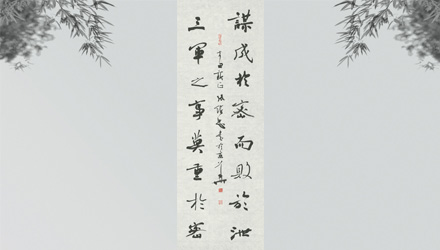 謀成於密而敗於泄
三軍之事莫重於密